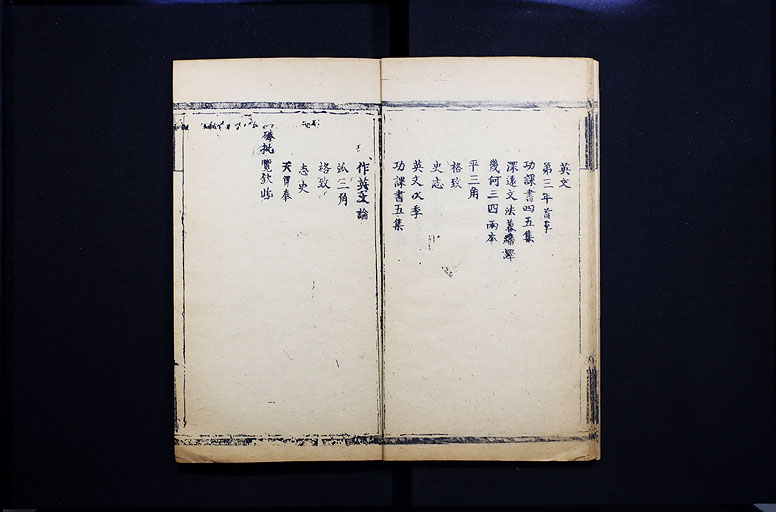 英文
第三年首季
功課書四五集
深遠文法兼繙譯
幾何三四兩本
平三角
格致
史志
英文次季
功課書五集
作英文論
弧三角
格致
志史
硃批覽欽此